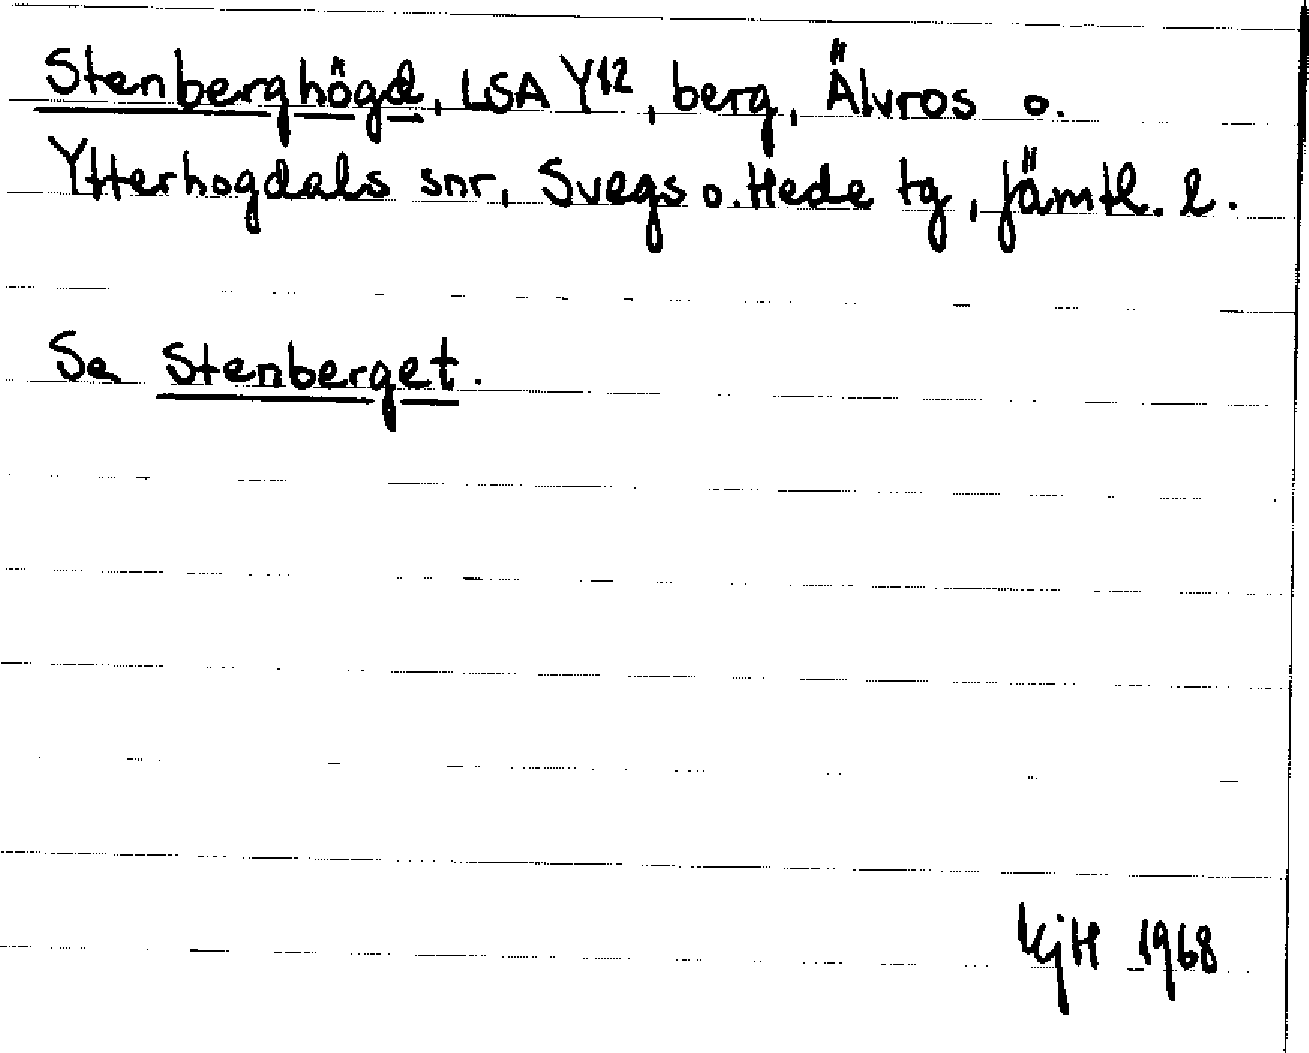 Stenberghögd, LSA Y12, berg, Älvros o.
Ytterhogdals snr, Svegs o. Hede tg, Jämtl. l.
Se Stenberget.
KjH 1968